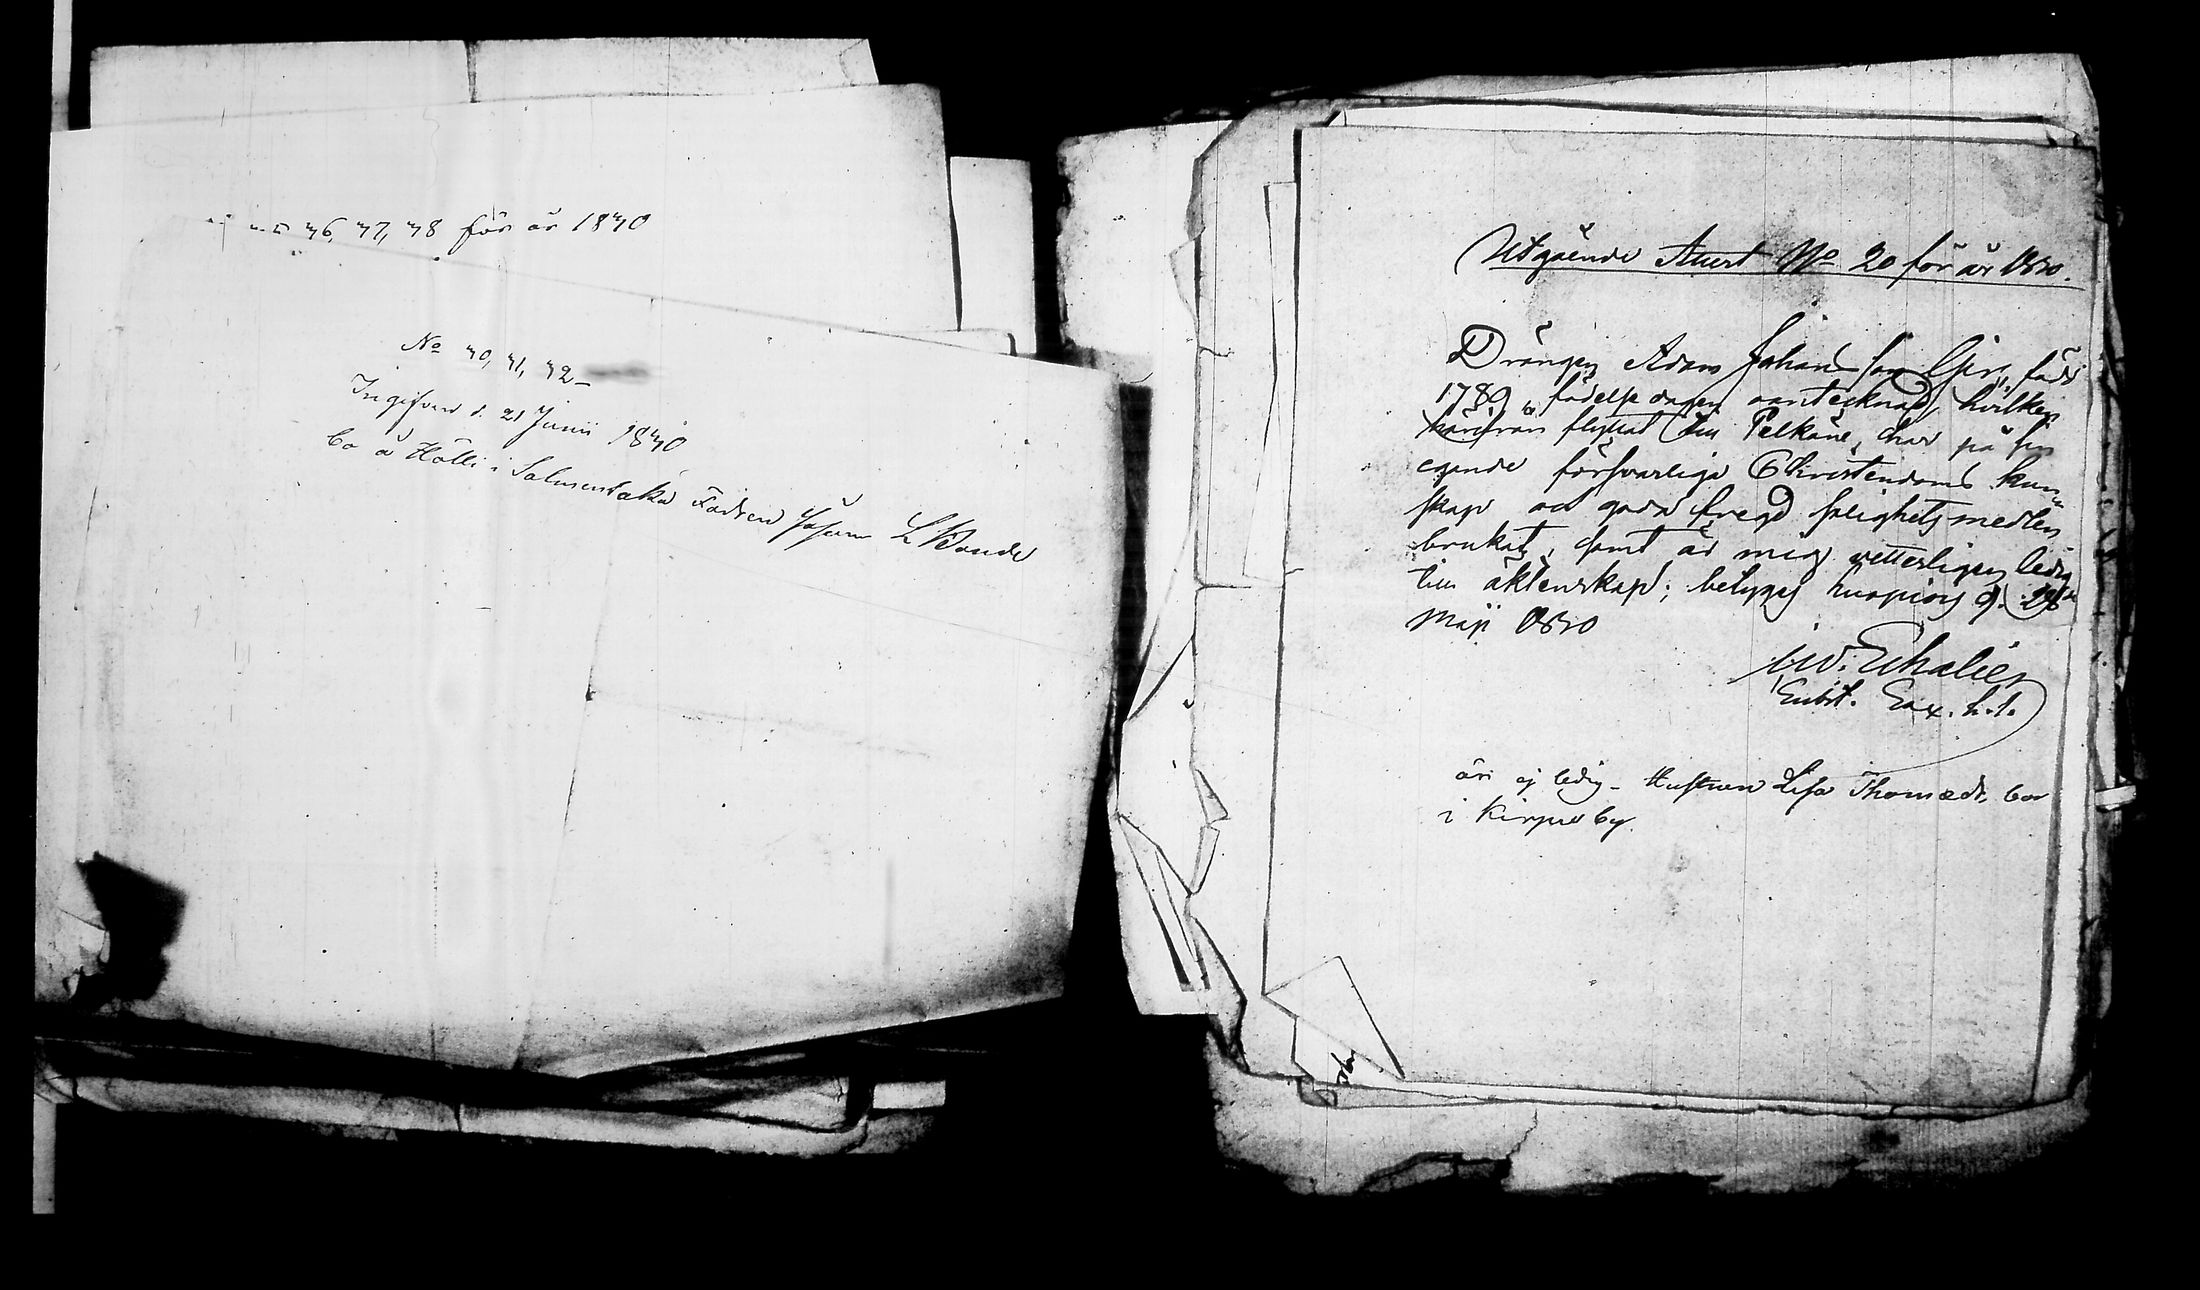 46, 47, 48 för år 1840
No 40, 41, 42 –
Ingifven d. 21 Junii 1840
bo å Hölli i Salmentaka
Utgående Attest No 20 för år 1840.
Drängen Adam Johansson född
1789, födelse dagen oantecknad, hvilken
härifrån flyttat till Pelkäne, har på sin
egande försvarliga Christendoms kun-
skap och goda fregd salighetsmedlen
brukat, samt är mig vetterligen ledig
till äktenskap; betygas d. 28
Maji 1840
äri ej ledig – Hustrun Lisa Thomædr. bor
i by.